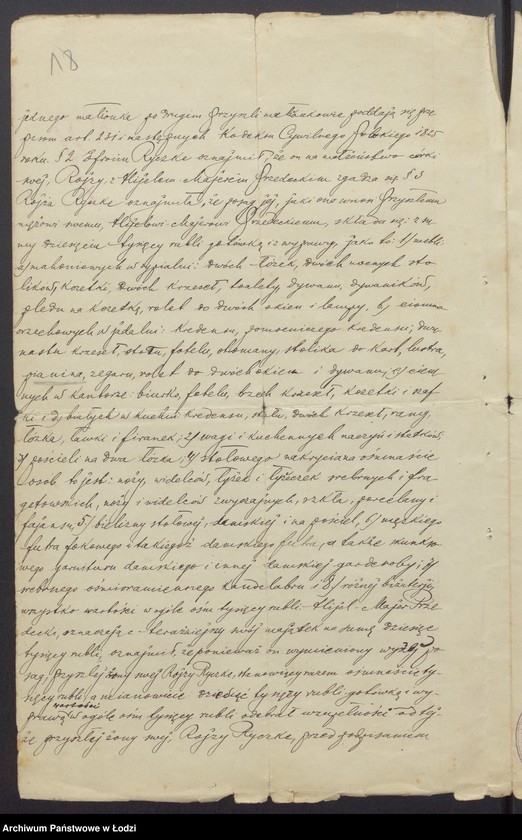 18
jednego małżonka po drugim przyszli małżonkowie poddają się prze
pisom art. 231 i następnych Kodeksu Cywilnego Polskiego 1825
roku. § 2. Efroim Ryczke oznajmił, że on na małżeństwo córki
swej, Rojzy, z Hijelem-Majerem Przedeckim zgadza się § 3
Rojza Ryczke oznajmiła, że posag jej, jaki ona wnosi przyszłemu
mężowi swemu, Hijelowi-Majerowi Przedeckiemu, składa się: z su
my dziesięciu tysięcy rubli gotówką i z wyprawy, jako to: 1/ mebli:
a/ mahoniowych w sypialni: dwóch łóżek, dwóch nocnych sto
lików, kozetki, dwóch krzeseł, toalety, dywanu, dywaników,
pledu na kozetkę, rolet do dwóch okien i lampy, b/ ciemno
orzechowych w jadalni: kredensu, pomocniczego kredensu, dwu
nastu krzeseł, stołu, fotelu, otomany, stolika do kart, lustra,
pianina, zegaru, rolet do dwóch okien i dywanu; c/ ciem
nych w kantorze: biurko, fotelu, trzech krzeseł, kozetki i szaf
ki i d/ białych w kuchni: kredensu, stołu, dwóch krzeseł, ramy,
łóżka, ławki i firanek; 2/ wagi i kuchennych naczyń i statków,
3/ pościeli na dwa łóżka; 4/ stołowego nakrycia na osiemnaście
osób to jest: noży, widelców, łyżek i łyżeczek srebrnych i fra
getowskich, noży i widelców zwyczajnych, szkła, porcelany i
fajansu, 5/ bielizny stołowej, damskiej i na pościel, 6/ męzkiego
futra fokowego i takiegoż damskiego futra, a także skunkso
wego garnituru damskiego i innej damskiej garderoby; 7/
srebrnego ośmioramiennego kandelabru i 8/ różnej biżuterji,
wszystko wartości w ogóle ośm tysięcy rubli. Hijel-Majer Prze
decki, oznaczając teraźniejszy swój majątek na sumę dziesięć
tysięcy rubli, oznajmił, że ponieważ on wymieniony wyżej po
sag przyszłej żony swej Rojzy Ryczke, stanowiący razem ośmnaście ty
sięcy rubli, a mianowicie dziesięć tysięcy rubli gotówką i wy-
prawą wartości w ogóle ośm tysięcy rubli odebrał w zupełności od tej
że przyszłej żony swej Rojzy Ryczke, przed podpisaniem
Archiwum Państwowe w Łodzi